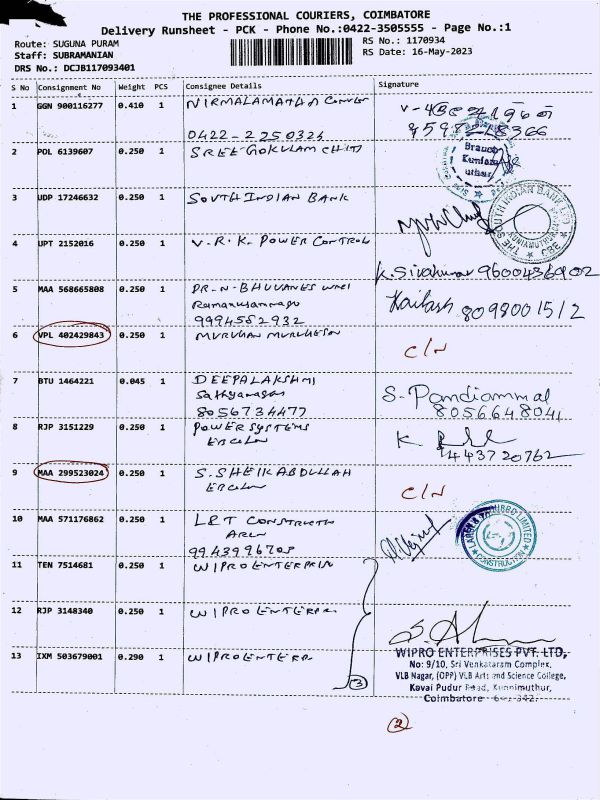 THE PROFESSIONAL COURIERS, COIMBATORE
Delivery Runsheet - PCK - Phone No.:0422-3505555 - Page No.:1
Route: SUGUNA PURAM
Staff: SUBRAMANIAN
DRS No.: DCJB117093401
RS No.: 1170934
RS Date: 16-May-2023
S No Consignment No Weight PCS Consignee Details Signature
1 GGN 900116277 0.410 1 NIRMALAMATHA
0422-2250326
2 POL 6139607 0.250 1 SREE GOKULAM CHITS
Branch
3 UDP 17246632 0.250 1 SOUTH INDIAN BANK
THE SOUTH INDIAN BANK LTD
CBE
4 UPT 2152016 0.250 1 V.R.K. POWER CONTROL
K. Sivakumar 9600436902
5 MAA 568665808 0.250 1 DR.N.
9994552932
Kailash 8098001512
6 VPL 402429843 0.250 1 MURUGAN MURUGESAN C/N
7 BTU 1464221 0.045 1 DEEPALAKSHMI
Sathyanagar
8056734477
S. Pandiammal
8056648041
8 RJP 3151229 0.250 1 POWER SYSTEMS
K
9443720762
9 MAA 299523024 0.250 1 S. SHEIK ABDULLAH C/N
10 MAA 571176862 0.250 1 L&T
9943996708
LIMITED
CONSTRUCTION
11 TEN 7514681 0.250 1 WIPRO
12 RJP 3148340 0.250 1 WIPRO
13 IXM 503679001 0.290 1 WIPRO
3
WIPRO ENTERPRISES PVT. LTD,
No: 9/10, Sri Venkataram Complex,
VLB Nagar, (OPP) VLB Arts and Science College,
Kovai Pudur Road, Kunnimuthur,
Coimbatore
2